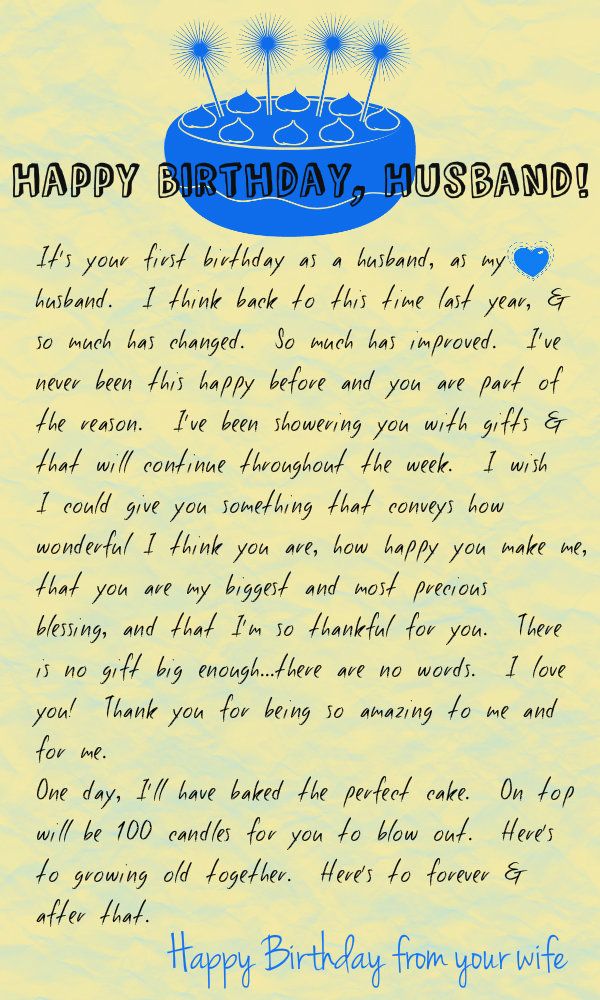 HAPPY BIRTHDAY, HUSBAND!
It's your first birthday as a husband, as my
husband. I think back to this time last year, &
so much has changed. So much has improved. I've
never been this happy before and you are part of
the reason. I've been showering you with gifts &
that will continue throughout the week. I wish
I could give you something that conveys how
wonderful I think you are, how happy you make me,
that you are my biggest and most precious
blessing, and that I'm so thankful for you. There
is no gift big enough...there are no words. I love
you! Thank you for being so amazing to me and
for me.
One day, I'll have baked the perfect cake. On top
will be 100 candles for you to blow out. Here's
to growing old together. Here's to forever &
after that.
Happy Birthday from your wife